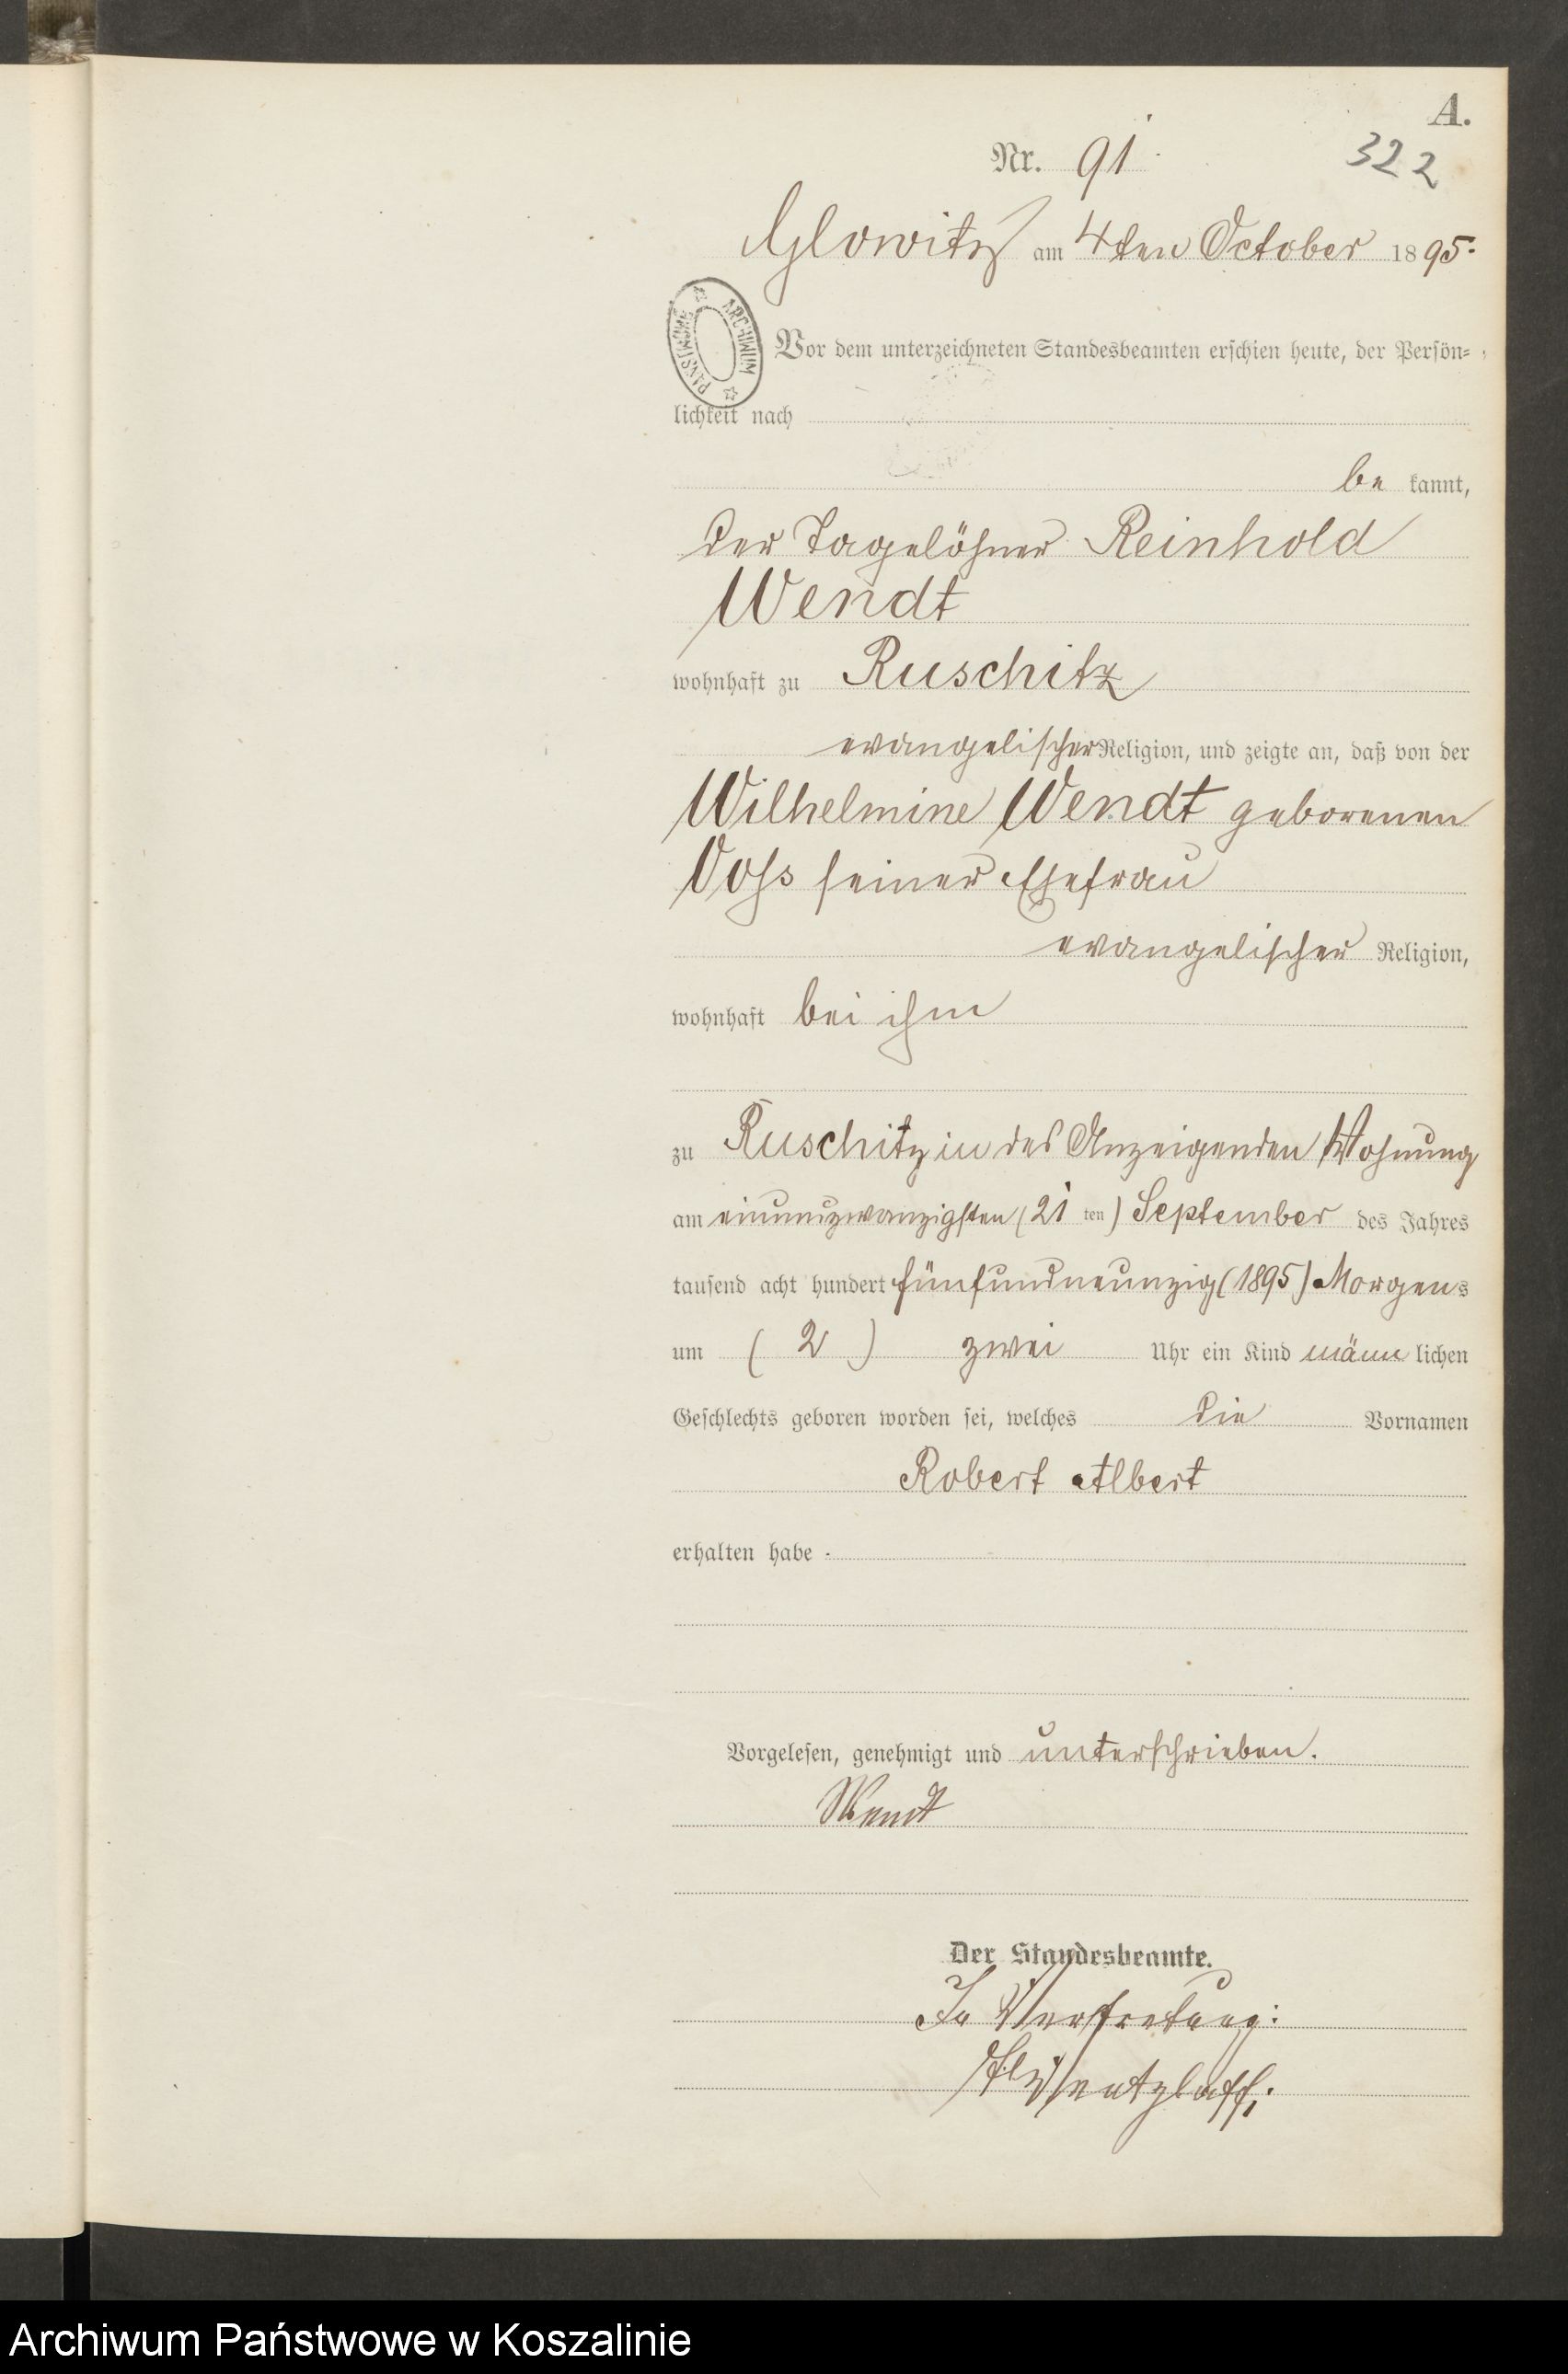 A.
Nr. 91.
322
Glowitz am 4ten October 1895.
ARCHIWUM PAŃSTWOWE
Vor dem unterzeichneten Standesbeamten erschien heute, der Persön-
lichkeit nach
be kannt,
der Tagelöhner Reinhold
Wendt
wohnhaft zu Ruschitz
evangelischer Religion, und zeigte an, daß von der
Wilhelmine Wendt geborenen
Voss seiner Ehefrau
evangelischer Religion,
wohnhaft bei ihm
zu Ruschitz in des Anzeigenden Wohnung
am einundzwanzigsten (21 ten) September des Jahres
tausend acht hundert fünfundneunzig (1895) Morgens
um ( 2 ) zwei Uhr ein Kind männ lichen
Geschlechts geboren worden sei, welches die Vornamen
Robert Albert
erhalten habe.
Vorgelesen, genehmigt und unterschrieben.
Wendt
Der Standesbeamte.
In Vertretung:
Wentzlaff.
Archiwum Państwowe w Koszalinie